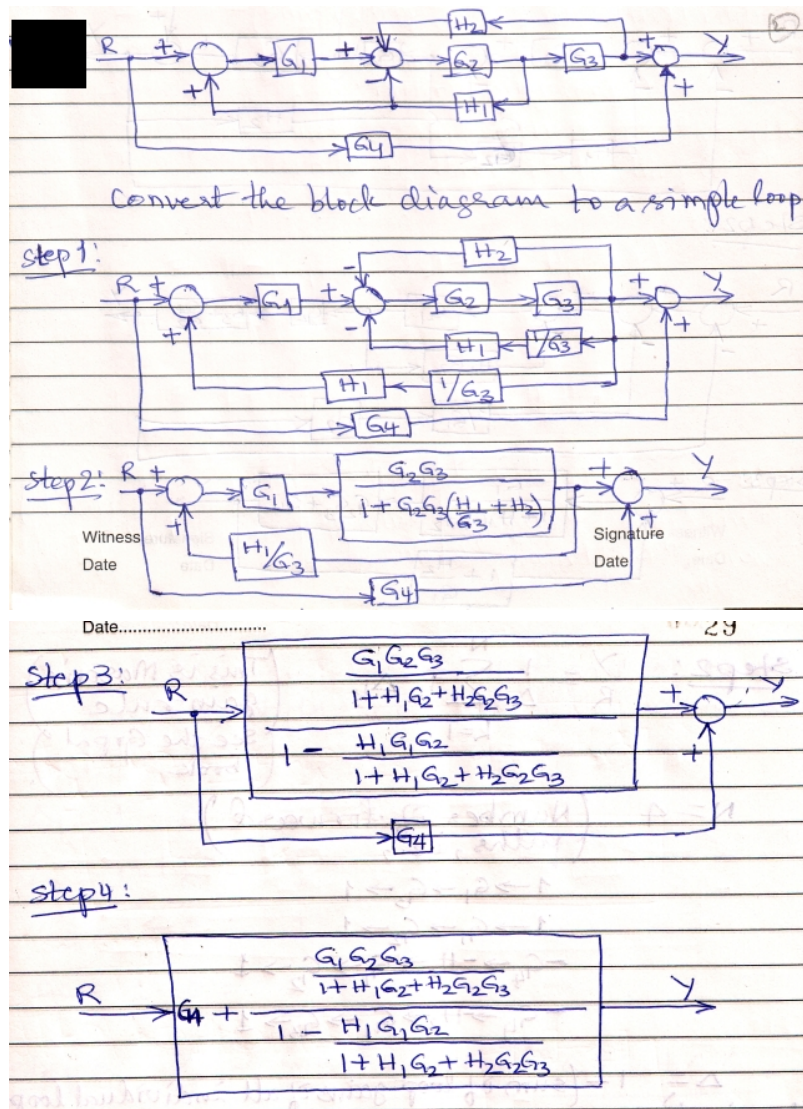 H2
R + G1 + - G2 G3 + Y
+ - H1 +
G4
Convert the block diagram to a simple loop
Step 1:
H2
R + G1 + - G2 G3 + Y
+ - H1 1/G3 +
H1 1/G3
G4
Step 2: R + G1 G2G3 / 1 + G2G3(H1/G3 + H2) + Y
+ H1/G3 +
Witness Signature
Date Date
G4
Date.............................. 29
Step 3:
R G1G2G3 / 1 + H1G2 + H2G2G3 + Y
1 - H1G1G2 / 1 + H1G2 + H2G2G3 +
G4
Step 4:
R G4 + G1G2G3 / 1 + H1G2 + H2G2G3 Y
1 - H1G1G2 / 1 + H1G2 + H2G2G3